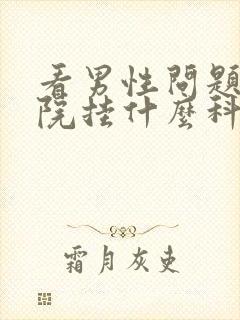 看男性問題
院挂什麼科
霜月灰吏